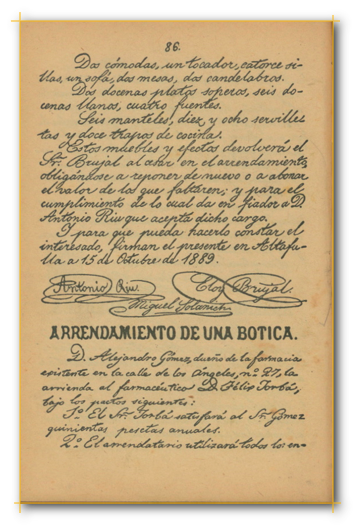 86.
Dos cómodas, un tocador, catorce si-
llas, un sofá, dos mesas, dos candelabros.
Dos docenas platos soperos, seis do-
cenas llanos, cuatro fuentes.
Seis manteles, diez y ocho serville
tas y doce trapos de cocina.
Estos muebles y efectos devolverá el
Sr. Brujal al cesar en el arrendamiento
obligándose a reponer de nuevo o a abonar
el valor de los que faltaren; y para el
cumplimiento de lo cual da en fiador a D.
Antonio Riu que acepta dicho cargo.
I para que pueda hacerlo constar el
interesado, firman el presente en Altafu-
lla a 15 de Otubre de 1889.
Antonio Riu. Eloy Brujal.
Miguel
ARRENDAMIENTO DE UNA BOTICA.
D. Alejandro Gómez, dueño de la farmacia
existente en la calle de los Angeles, nº 27, la
arrienda al farmacéutico D. Felip Torbá,
bajo los pactos siguientes:
1º El Sr. Torbá satisfará al Sr. Gómez
quinientas pesetas anuales.
2º El arrendatario utilizará todos los en-